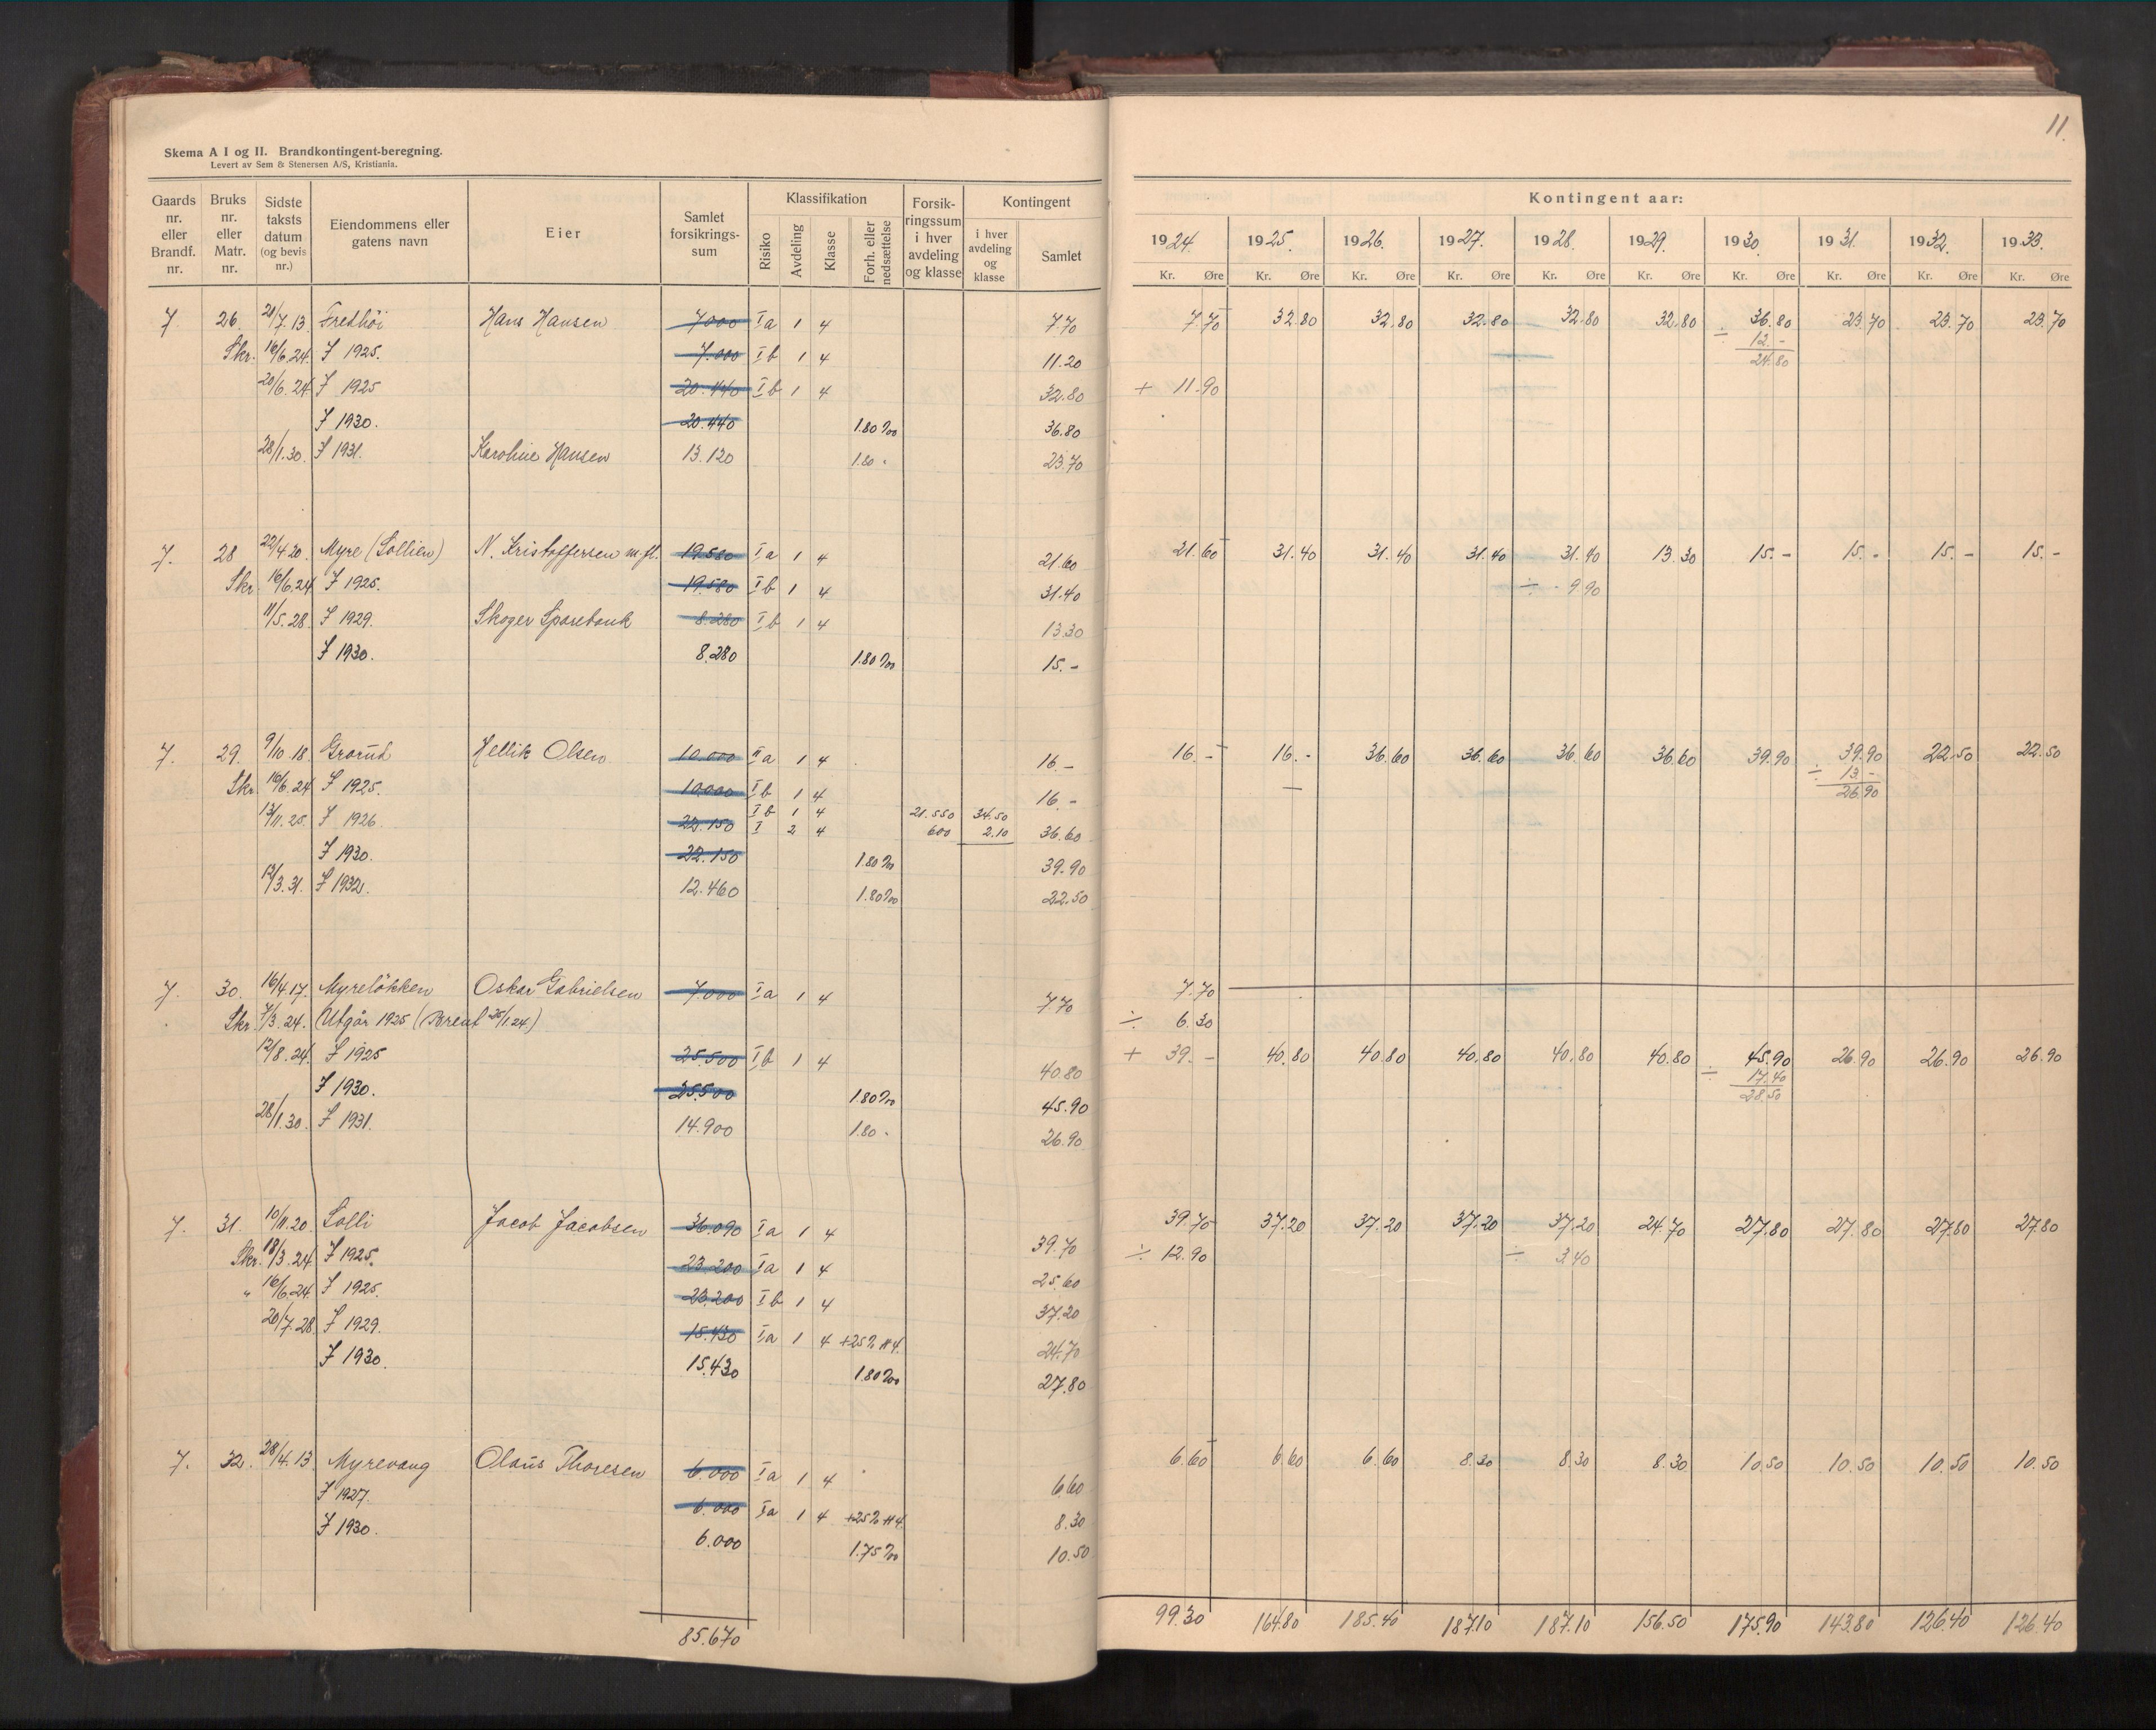 11.
Skema A I og II. Brandkontingent-beregning.
Levert av Sem & Stenersen A/S, Kristiania.
Gaards nr. eller Brandf. nr. | Bruks nr. eller Matr. nr. | Sidste taksts datum (og bevis nr.) | Eiendommens eller gatens navn | Eier | Samlet forsikrings-sum | Klassifikation | Risiko | Avdeling | Klasse | Forh. eller nedsættelse | Forsik-ringssum i hver avdeling og klasse | Kontingent | i hver avdeling og klasse | Samlet
Kontingent aar:
1924. 1925. 1926. 1927. 1928. 1929. 1930. 1931. 1932. 1933.
Kr. Øre Kr. Øre Kr. Øre Kr. Øre Kr. Øre Kr. Øre Kr. Øre Kr. Øre Kr. Øre Kr. Øre
7 26. 21/7.13. Fredhöi Hans Hansen 7000 I a 1 4 7.70 7.70 32.80 32.80 32.80 32.80 32.80 36.80 23.70 23.70 23.70
Skr. 16/6.24. F 1925. 7.000 I b 1 4 11.20 ÷ 12.- 24.80
20/6.24 F 1925 20.440 I b 1 4 32.80 + 11.90
F 1930. 20.440 1.80‰ 36.80
28/1.30. F 1931. Karoline Hansen 13.120 1.80 " 23.70
7. 28 22/4.20. Myre (Sollien) N. Kristoffersen m.fl. 19.580 I a 1 4 21.60 21.60 31.40 31.40 31.40 31.40 13.30 15.- 15.- 15.- 15.-
Skr 16/6.24 F 1925. 19.580 I b 1 4 31.40 ÷ 9.90
11/5.28. F 1929. Skoger Sparebank 8.280 I b 1 4 13.30
F 1930. 8.280 1.80‰ 15.-
7. 29. 9/10 18. Grorud Hellik Olsen 10.000 II a 1 4 16.- 16.- 16.- 36.60 36.60 36.60 36.60 39.90 39.90 22.50 22.50
Skr. 16/6.24 F 1925. 10.000 I b 1 4 16.- — ÷ 13.- 26.90
13/11.25. F 1926. 22.150 I b 1 4 21.550 34.50
I 2 4 600 2.10 36.60
F 1930. 22.150 1.80‰ 39.90
12/3.31. F 1932. 12.460 1.80‰ 22.50
7. 30. 16/4.17. Myreløkken Oskar Gabrielsen 7.000 I a 1 4 7.70 7.70
Skr. 7/3.24. (Utgår 1925 (Brent 25/1.24) ÷ 6.30
12/8.24. F 1925 25.500 I b 1 4 40.80 + 39.- 40.80 40.80 40.80 40.80 40.80 45.90 26.90 26.90 26.90
F 1930. 25.500 1.80‰ 45.90 ÷ 17.40 28.50
28/1.30. F 1931. 14.900 1.80 " 26.90
7. 31. 10/11.20. Solli Jacob Jacobsen 36.090 I a 1 4 39.70 39.70 37.20 37.20 37.20 37.20 24.70 27.80 27.80 27.80 27.80
Skr. 18/3.24. F 1925. 23.200 I a 1 4 25.60 ÷ 12.90 ÷ 3.40
" 16/6.24. F 1925. 23.200 I b 1 4 37.20
20/7.28 F 1929. 15.430 I a 1 4 +25% H4. 24.70
F 1930. 15.430 1.80‰ 27.80
7. 32. 28/4.13. Myrevang Olaus Thoresen 6.000 I a 1 4 6.60 6.60 6.60 6.60 8.30 8.30 8.30 10.50 10.50 10.50 10.50
F 1927. 6.000 I a 1 4 +25% H4. 8.30
F 1930. 6.000 1.75‰ 10.50
85.670 99.30 164.80 185.40 187.10 187.10 156.50 175.90 143.80 126.40 126.40